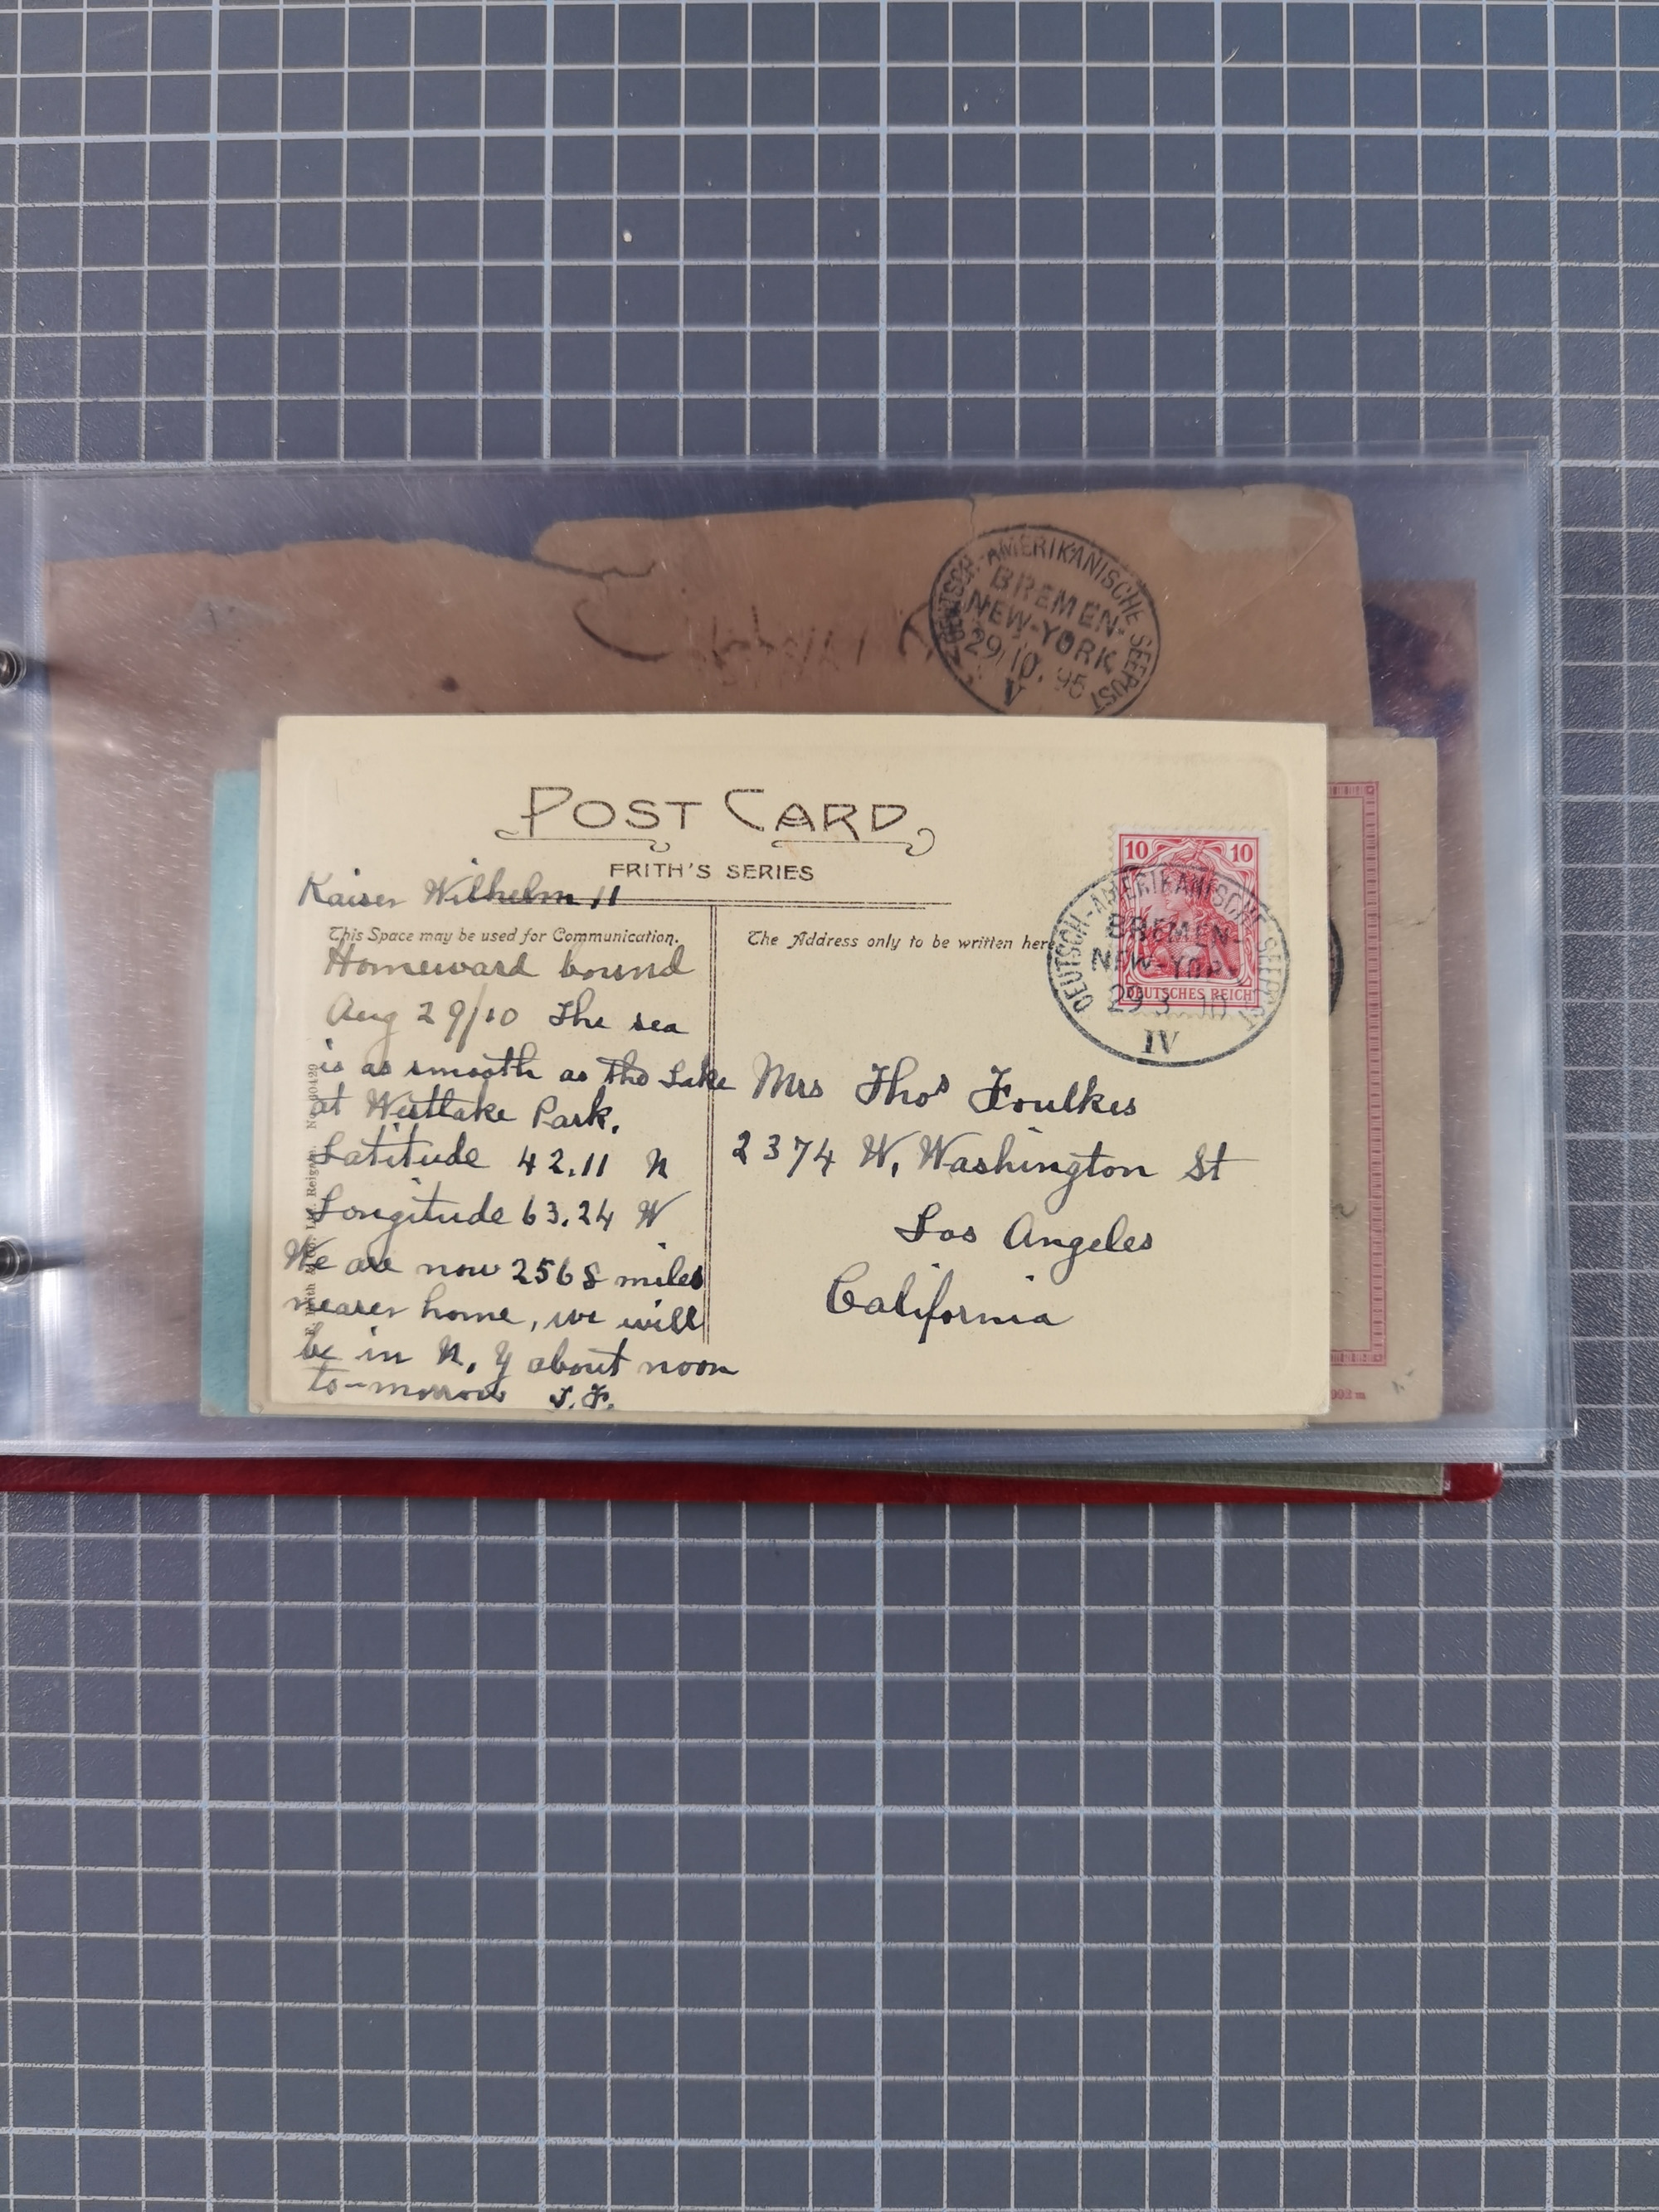 DEUTSCH-AMERIKANISCHE SEEPOST
BREMEN-
NEW-YORK
29/10.95
V
POST CARD
FRITH'S SERIES
Kaiser Wilhelm 11
This Space may be used for Communication.
The Address only to be written here
Homeward bound
Aug 29/10 The sea
is as smooth as the Lake
at Westlake Park.
Latitude 42.11 N
Longitude 63.24 W
We are now 2568 miles
nearer home, we will
be in N.Y about noon
to-morrow
10 10
DEUTSCHES REICH
DEUTSCH-AMERIKANISCHE SEEPOST
BREMEN-
NEW-YORK
IV
Mrs Thos Foulkes
2374 W. Washington St
Los Angeles
California
Reigate.